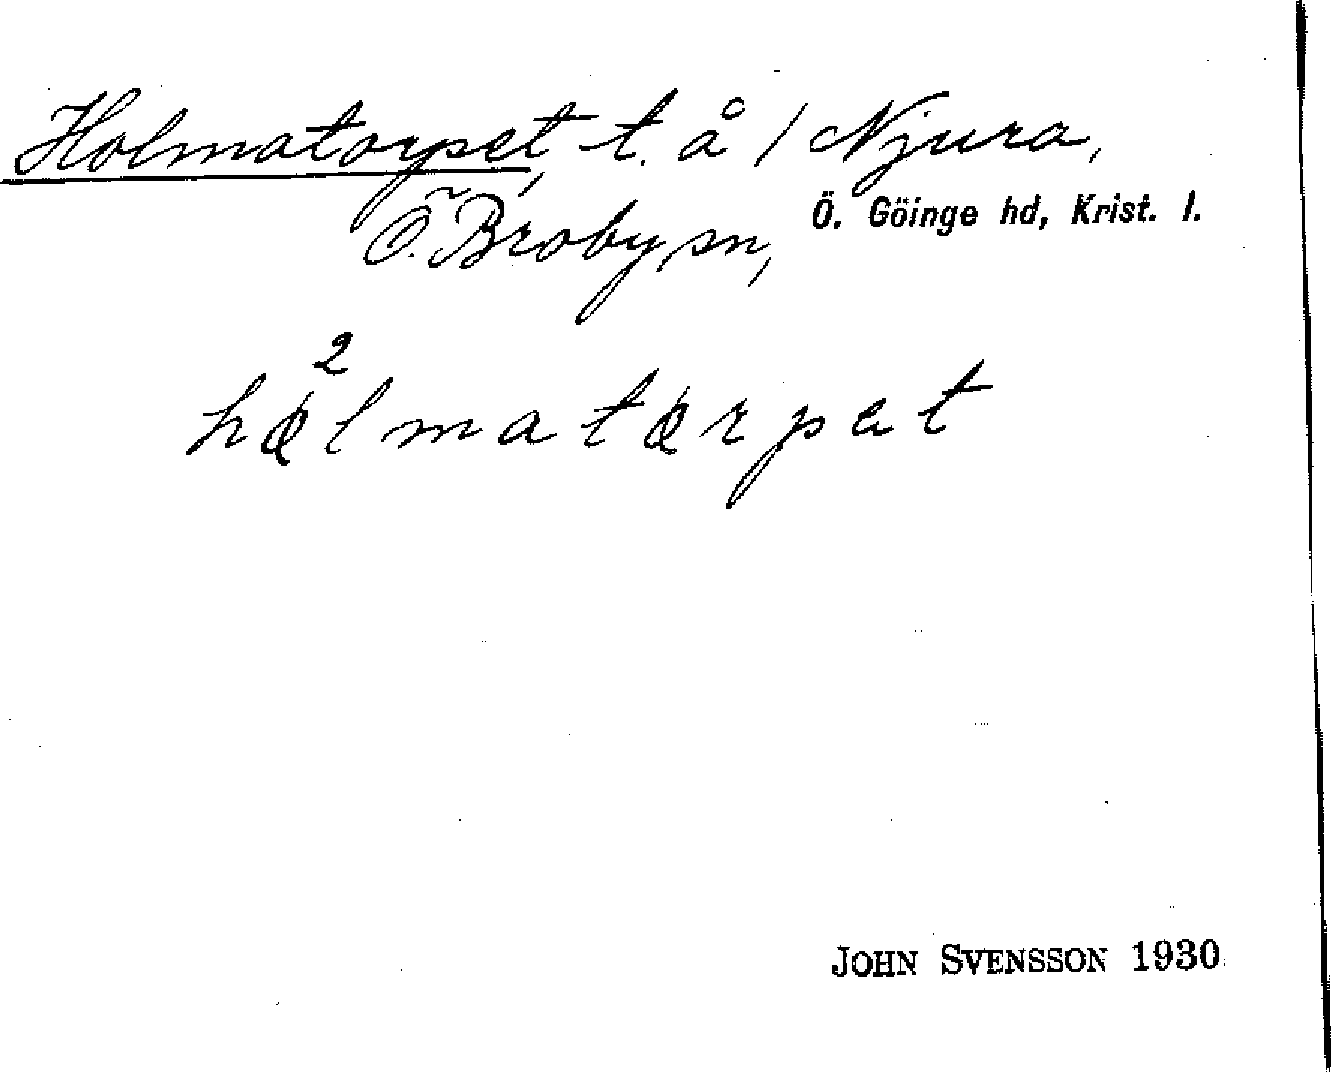 Holmatorpet, t. å 1 Njura,
Ö. Broby sn, Ö. Göinge hd, Krist. l.
2
hølmatørpet
JOHN SVENSSON 1930